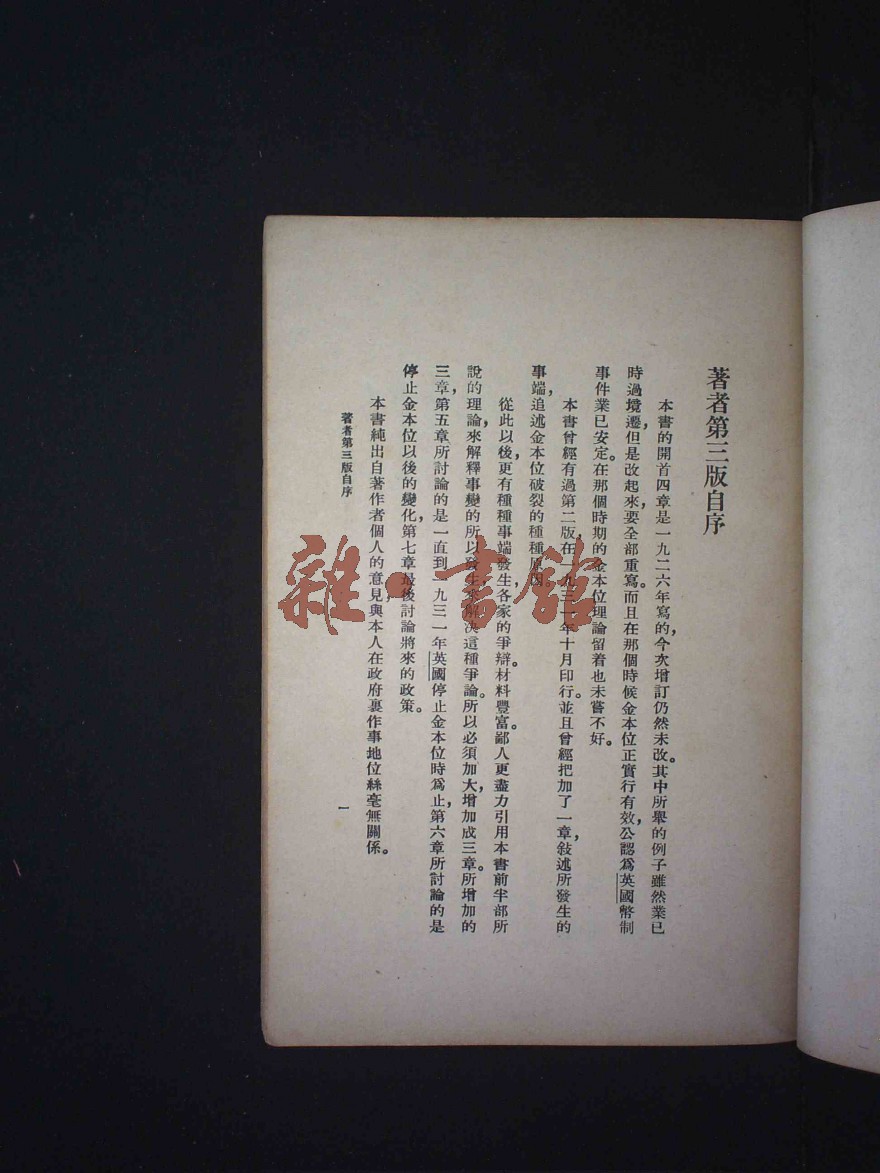 著者第三版自序
本書的開首四章是一九二六年寫的，今次增訂仍然未改。其中所舉的例子雖然業已
時過境遷，但是改起來，要全部重寫。而且在那個時候金本位正實行有效，公認爲英國幣制
事件業已安定。在那個時期的金本位理論留着也未嘗不好。
本書曾經有過第二版，在一九三一年十月印行。並且曾經把加了一章，敍述所發生的
事端，追述金本位破裂的種種原因。
從此以後，更有種種事端發生，各家的爭辯材料豐富。鄙人更盡力引用本書前半部所
說的理論，來解釋事變的所以發生，來解決這種爭論。所以必須加大，增加成三章。所增加的
三章，第五章所討論的是一直到一九三一年英國停止金本位時爲止，第六章所討論的是
停止金本位以後的變化，第七章最後討論將來的政策。
本書純出自著作者個人的意見，與本人在政府裏作事地位絲毫無關係。
著者第三版自序
一
雜·書館